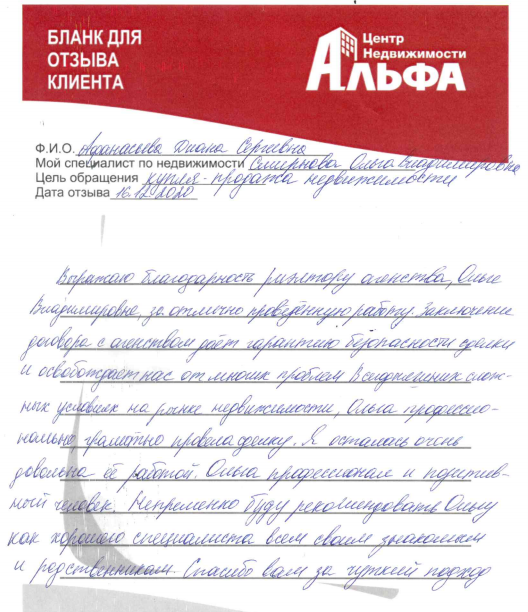 БЛАНК ДЛЯ
ОТЗЫВА
КЛИЕНТА
Центр
Недвижимости
АЛЬФА
Ф.И.О. Афанасьева Диана Сергеевна
Мой специалист по недвижимости Смирнова Ольга Владимировна
Цель обращения купля-продажа недвижимости
Дата отзыва 16.12.2020
Выражаю благодарность риэлтору агенства, Ольге
Владимировне, за отлично проведённую работу. Заключение
договора с агенством даёт гарантию безопасности сделки
и освобождает нас от многих проблем. В сегодняшних слож-
ных условиях на рынке недвижимости, Ольга профессио-
нально, грамотно провела сделку. Я осталась очень
довольна её работой. Ольга профессионал и позитив-
ный человек. Непременно буду рекомендовать Ольгу
как хорошего специалиста всем своим знакомым
и родственникам. Спасибо вам за чуткий подход